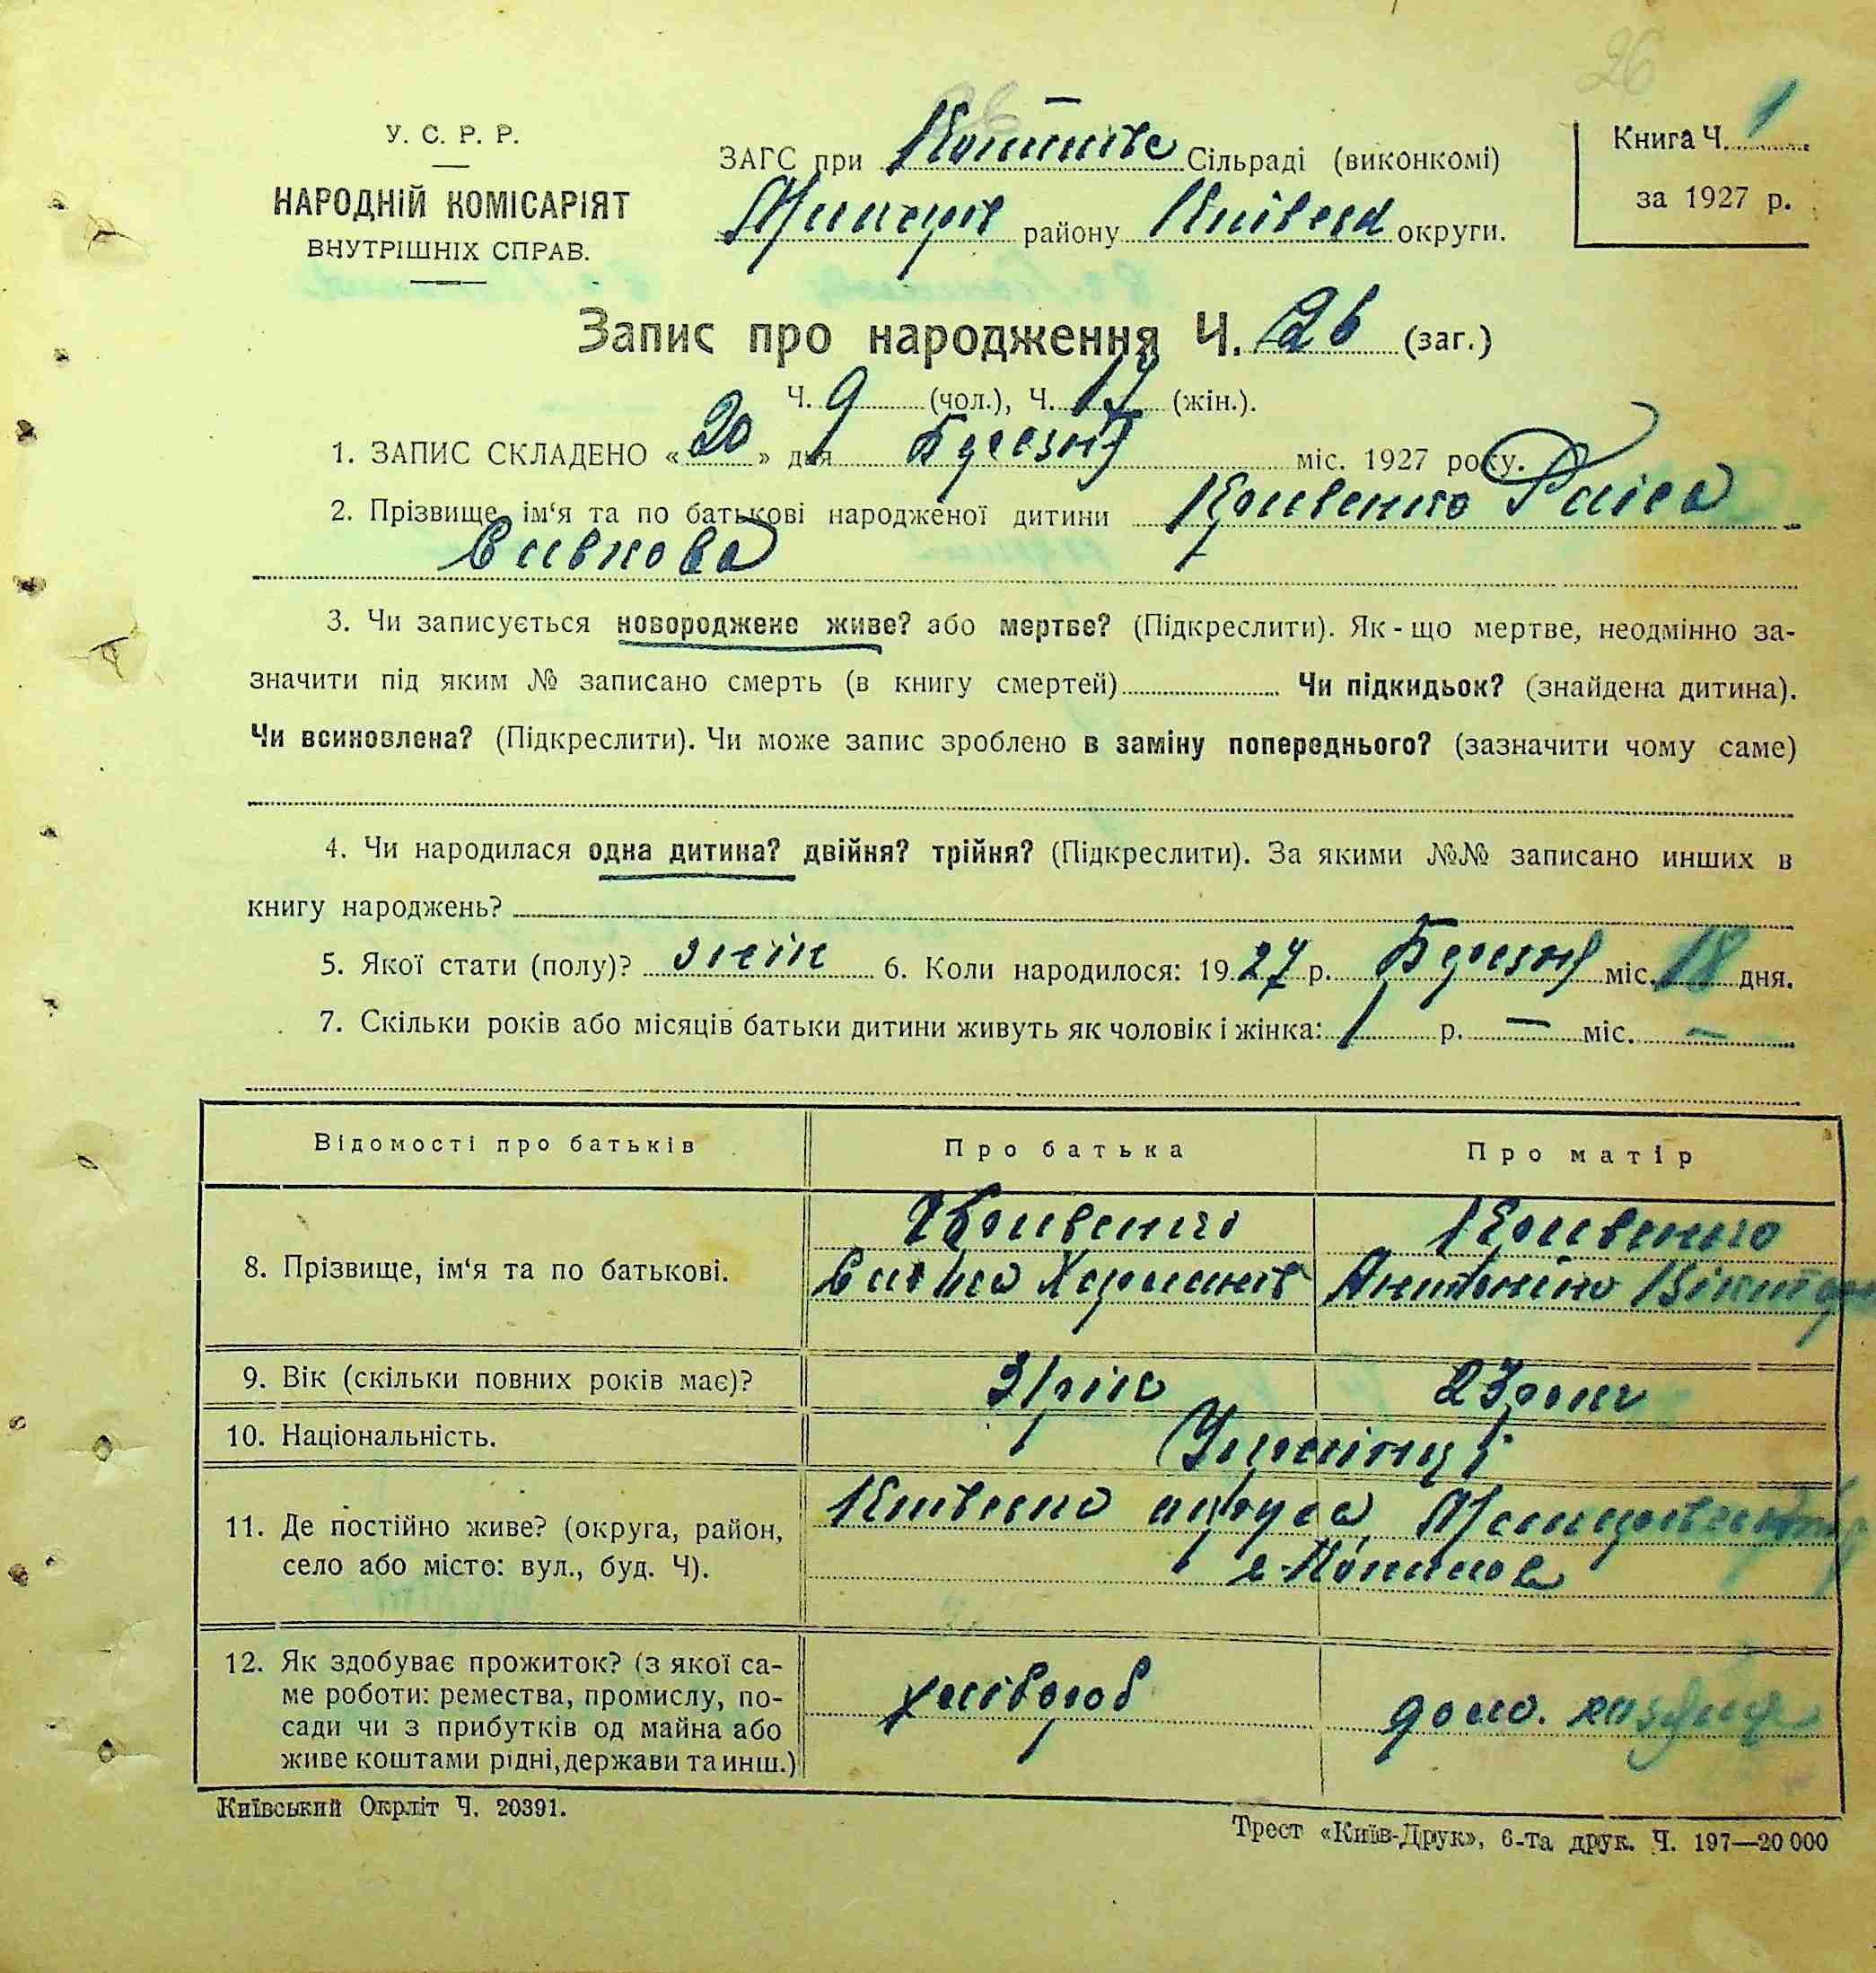 26
У. С. Р. Р.
НАРОДНІЙ КОМІСАРІЯТ
ВНУТРІШНІХ СПРАВ.
ЗАГС при Сільраді (виконкомі)
району Київськ округи.
Книга Ч. 1
за 1927 р.
Запис про народження Ч. 26 (заг.)
Ч. 9 (чол.), Ч. 17 (жін.).
1. ЗАПИС СКЛАДЕНО «20» дня Березня міс. 1927 року.
2. Прізвище, ім‘я та по батькові народженої дитини Кривенко Раіса
Савкова
3. Чи записується новороджене живе? або мертве? (Підкреслити). Як-що мертве, неодмінно за-
значити під яким № записано смерть (в книгу смертей) Чи підкидьок? (знайдена дитина).
Чи всиновлена? (Підкреслити). Чи може запис зроблено в заміну попереднього? (зазначити чому саме)
4. Чи народилася одна дитина? двійня? трійня? (Підкреслити). За якими №№ записано инших в
книгу народжень?
5. Якої стати (полу)? жін 6. Коли народилося: 1927 р. Березня міс. 18 дня.
7. Скільки років або місяців батьки дитини живуть як чоловік і жінка: 1 р. — міс. —
Відомості про батьків
Про батька
Про матір
8. Прізвище, ім‘я та по батькові.
Кривенко
Савка
Кривенко
Антоніна
9. Вік (скільки повних років має)?
31 рік
23 роки
10. Національність.
Українці
11. Де постійно живе? (округа, район,
село або місто: вул., буд. Ч).
Київська округа
12. Як здобуває прожиток? (з якої са-
ме роботи: ремества, промислу, по-
сади чи з прибутків од майна або
живе коштами рідні, держави та инш.)
хлібороб
дом.
Київський Окрліт Ч. 20391.
Трест «Київ-Друк», 6-та друк. Ч. 197—20 000